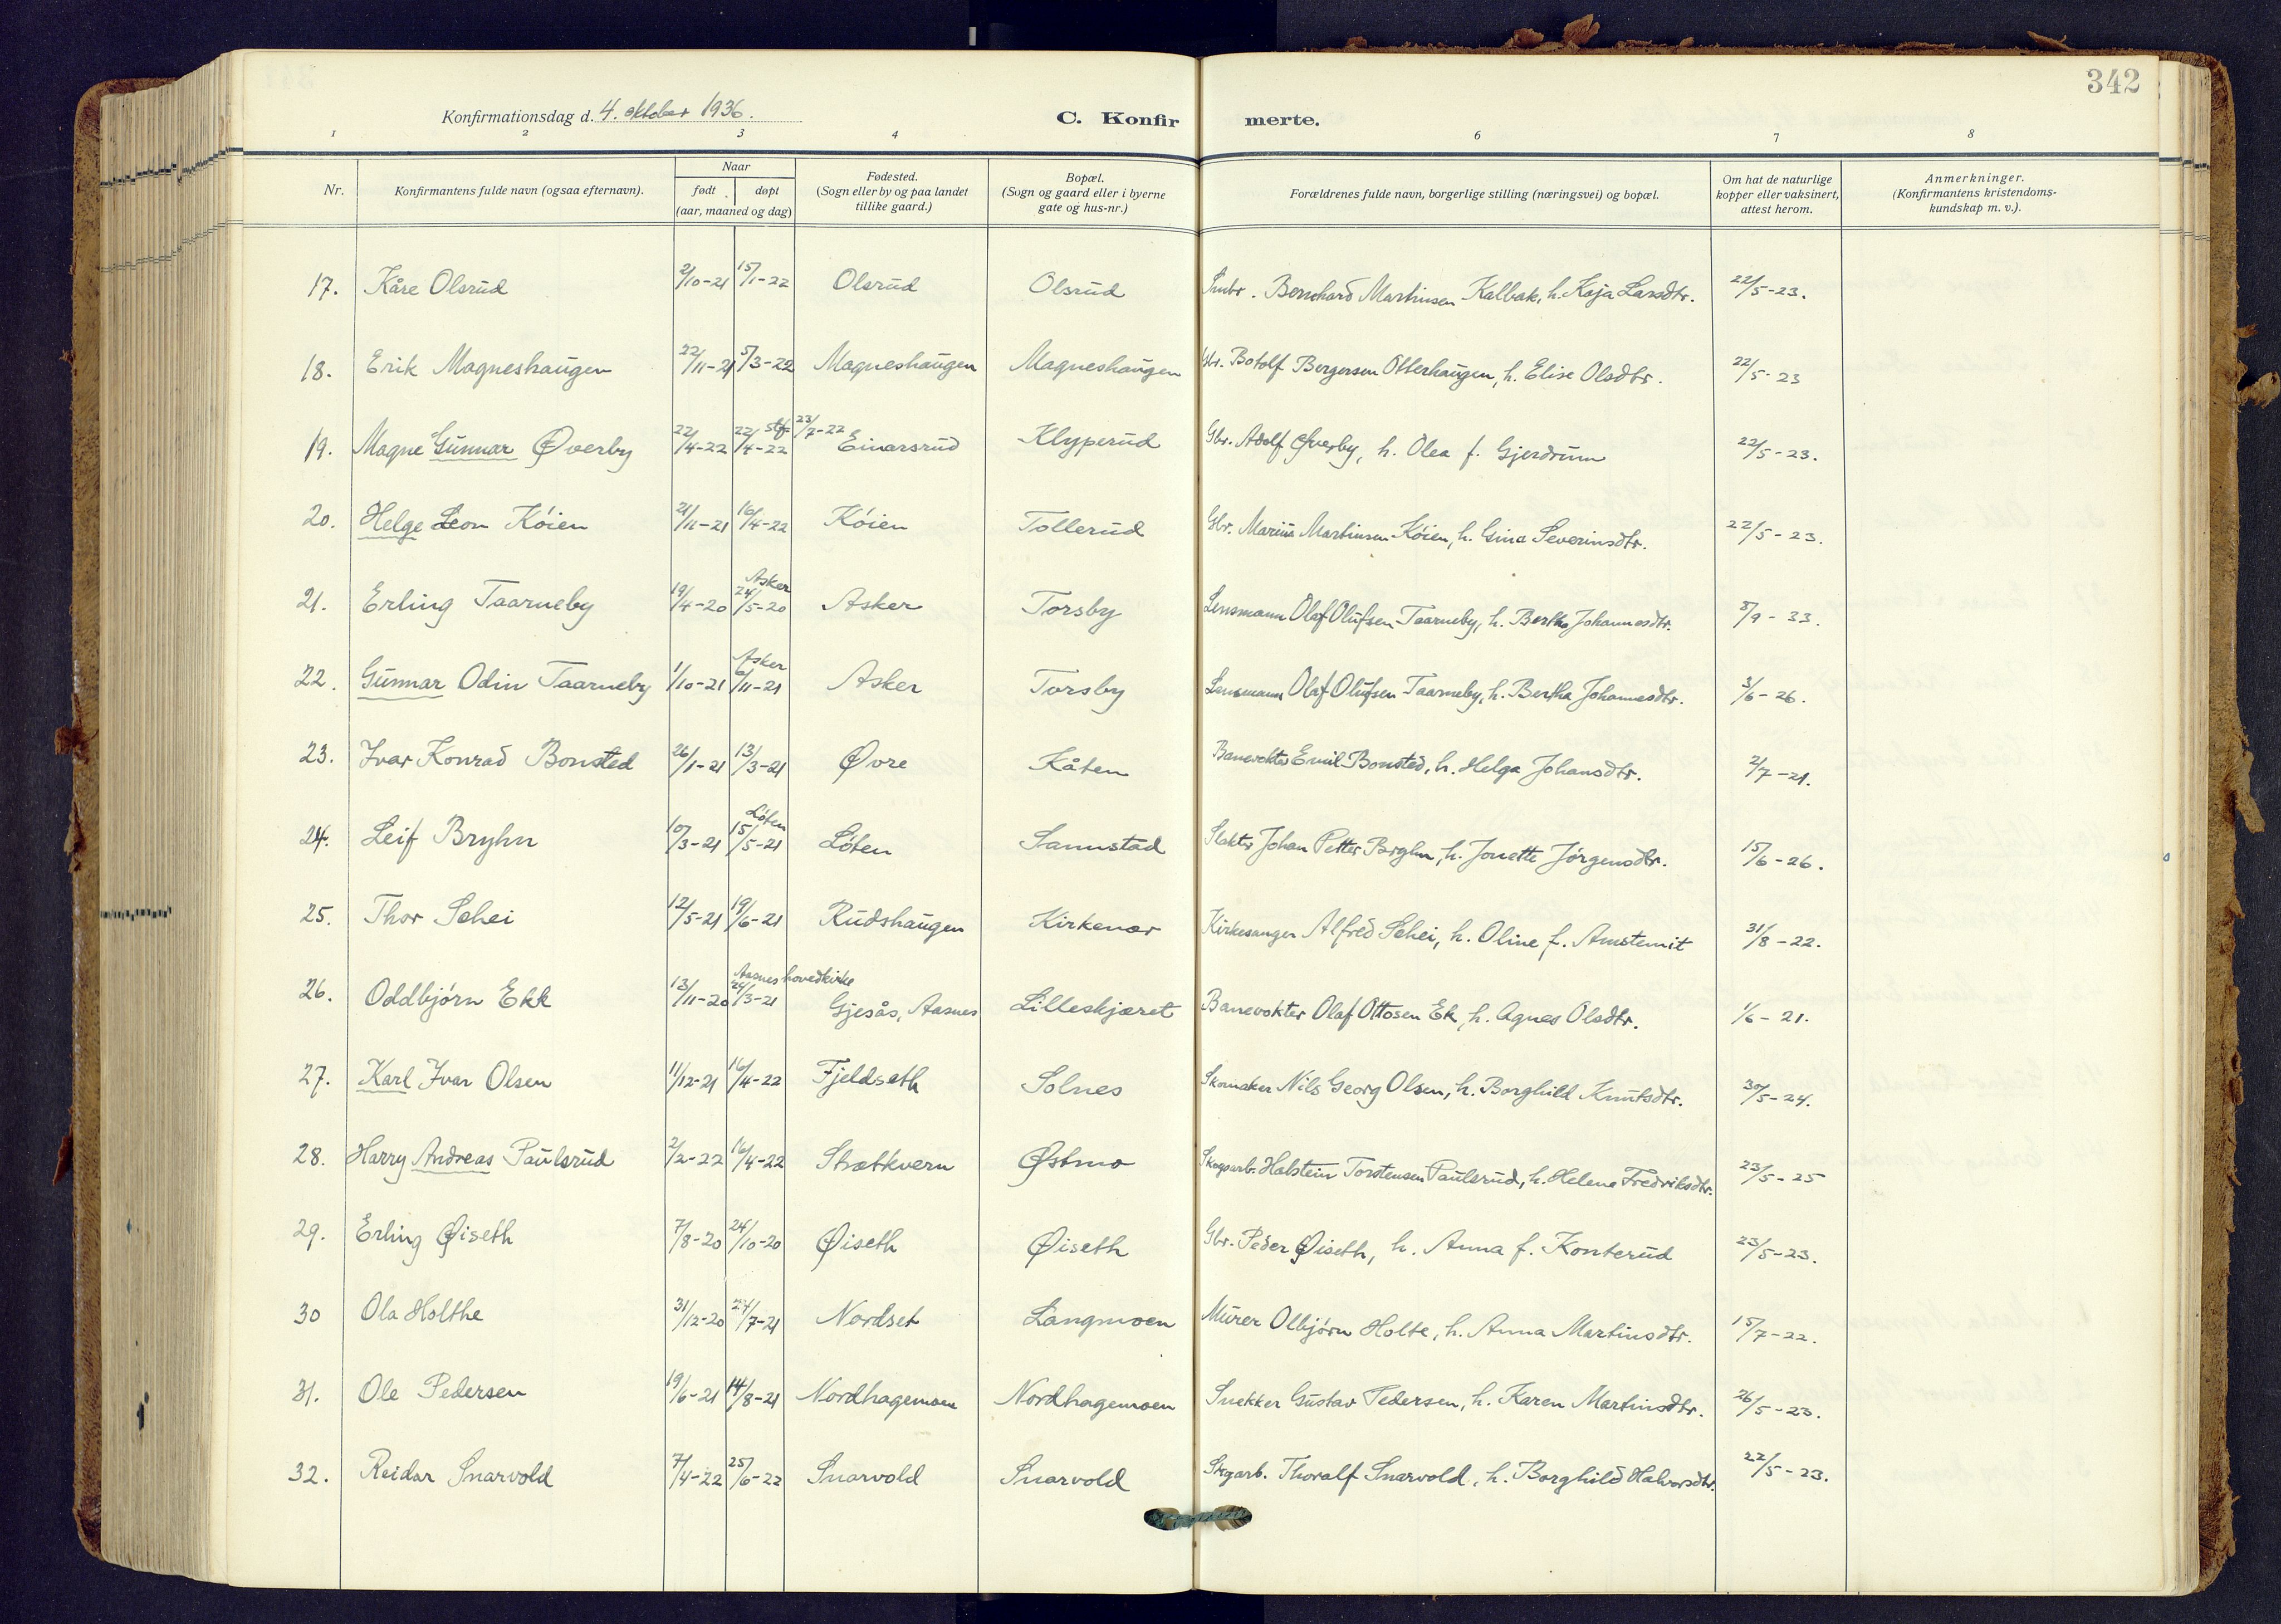 342
Konfirmationsdag d. 4. oktober 1936.
C. Konfirmerte.
1 2 3 4 6 7 8
Nr.
Konfirmantens fulde navn (ogsaa efternavn).
Naar
født døpt
(aar, maaned og dag)
Fødested.
(Sogn eller by og paa landet
tillike gaard.)
Bopæl.
(Sogn og gaard eller i byerne
gate og hus-nr.)
Forældrenes fulde navn, borgerlige stilling (næringsvei) og bopæl.
Om hat de naturlige
kopper eller vaksinert,
attest herom.
Anmerkninger.
(Konfirmantens kristendoms-
kundskap m. v.).
17. Kåre Olsrud 2/10-21 15/1-22 Olsrud Olsrud Smbr. Bernhard Martinsen Kalbak, h. Kaja Larsdtr. 22/5-23.
18. Erik Magneshaugen 22/11-21 5/3-22 Magneshaugen Magneshaugen Gbr. Botolf Bergersen Otterhaugen, h. Elise Olsdtr. 22/5-23
19. Magne Gunnar Øverby 22/4-22 22/4-22 stf. 23/7-22 Einarsrud Klyperud Gbr. Adolf Øverby, h. Olea f. Gjerdrum 22/5-23.
20. Helge Leon Köien 21/11-21 16/4-22 Köien Tollerud Gbr. Marius Martinsen Köien, h. Gina Severinsdtr. 22/5-23.
21. Erling Taarneby 19/4-20 Asker 24/5-20 Asker Torsby Lensmann Olaf Olufsen Taarneby, h. Bertha Johannesdtr. 8/9-33.
22. Gunnar Odin Taarneby 1/10-21 Asker 6/11-21 Asker Torsby Lensmann Olaf Olufsen Taarneby, h. Bertha Johannesdtr. 3/6-26.
23. Ivar Konrad Bonsted 26/1-21 13/3-21 Øvre Kåten Banevokter Emil Bonsted, h. Helga Johansdtr. 2/7-21.
24. Leif Bryhn 10/3-21 Löten 15/5-21 Löten Sannstad Slakter Johan Petter Bryhn, h. Jonette Jörgensdtr. 15/6-26.
25. Thor Schei 12/5-21 19/6-21 Rudshaugen Kirkenær Kirkesanger Alfred Schei, h. Oline f. Arnstemit 31/8-22.
26. Oddbjörn Ekk 13/11-20 Aasnes hovedkirke 24/3-21 Gjesås, Aasnes Lilleskjæret Banevokter Olaf Ottosen Ek, h. Agnes Olsdtr. 1/6-21.
27. Karl Ivar Olsen 11/12-21 16/4-22 Fjeldseth Solnes Skomaker Nils Georg Olsen, h. Borghild Knutsdtr. 30/5-24.
28. Harry Andreas Paulsrud 2/2-22 16/4-22 Strætkvern Østmo Skogsarb. Halstein Torstensen Paulsrud, h. Helene Fredriksdtr. 23/5-25
29. Erling Øiseth 7/8-20 24/10-20 Øiseth Øiseth Gbr. Peder Øiseth, h. Anna f. Konterud 23/5-23.
30 Ola Holthe 31/12-20 24/7-21 Nordset Langmoen Murer Olbjörn Holte, h. Anna Martinsdtr. 15/7-22.
31. Ole Pedersen 19/6-21 14/8-21 Nordhagemoen Nordhagemoen Snekker Gustav Pedersen, h. Karen Martinsdtr. 26/5-23.
32. Reidar Snarvold 7/4-22 25/6-22 Snarvold Snarvold Skgarb. Thoralf Snarvold, h. Borghild Halvorsdtr. 22/5-23.